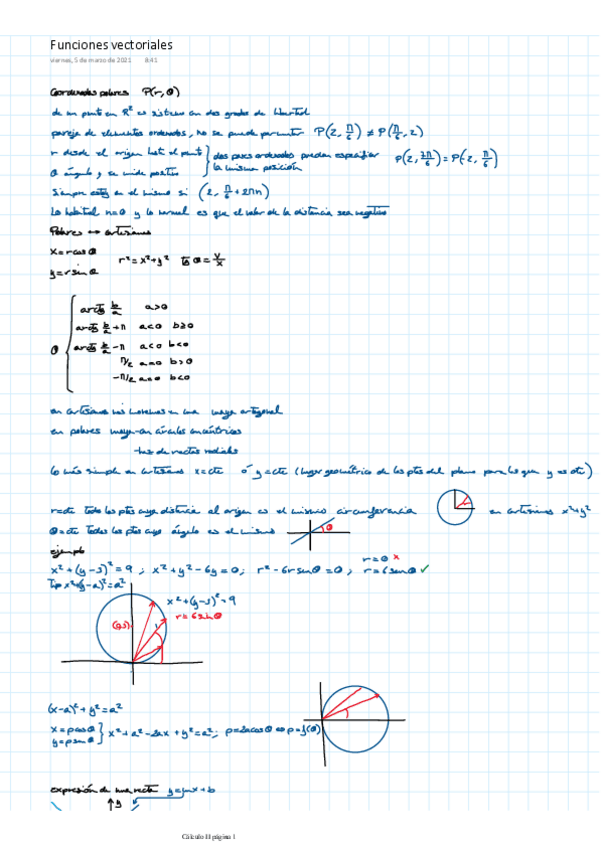 Funciones vectoriales
viernes, 5 de marzo de 2021 8:41
Coordenadas polares P(r, θ)
de un punto en R² es sistema con dos grados de libertad
pareja de elementos ordenados, no se puede permutar P(2, π/6) ≠ P(π/6, 2)
r desde el origen hast el punto } dos pares ordenados pueden especificar P(2, 7π/6) = P(-2, π/6)
θ ángulo, se mide positivo la misma posición
siempre estoy en el mismo si (2, π/6 + 2πn)
lo habitual n=0 y lo normal es que el valor de la distancia sea negativo
Polares ↔ cartesianas
x = r cos θ
r² = x² + y² tg θ = y/x
y = r sin θ
θ {
arctg b/a a>0
arctg b/a + π a<0 b≥0
arctg b/a - π a<0 b<0
π/2 a=0 b>0
-π/2 a=0 b<0
en cartesianas nos movemos en una maya ortogonal
en polares maya-en círculos concéntricos
-haz de rectas radiales
lo más simple en cartesianas x=cte ó y=cte (lugar geométrico de los ptos del plano para los que y es cte)
r=cte todos los ptos cuya distancia al origen es el mismo circunferencia en cartesianas x²+y²
θ=cte todos los ptos cuyo ángulo es el mismo θ
ejemplo
r=0 ×
x² + (y-3)² = 9 ; x² + y² - 6y = 0 ; r² - 6r sin θ = 0 ; r = 6 sin θ ✓
Tip x²+(y-a)² = a²
x² + (y-3)² = 9
r = 6 sin θ
(0,3)
(x-a)² + y² = a²
x = ρ cos θ } x² + a² - 2ax + y² = a² ; ρ = 2a cos θ ⇔ ρ = f(θ)
y = ρ sin θ
expresión de una recta y = mx + b
y
Cálculo II página 1